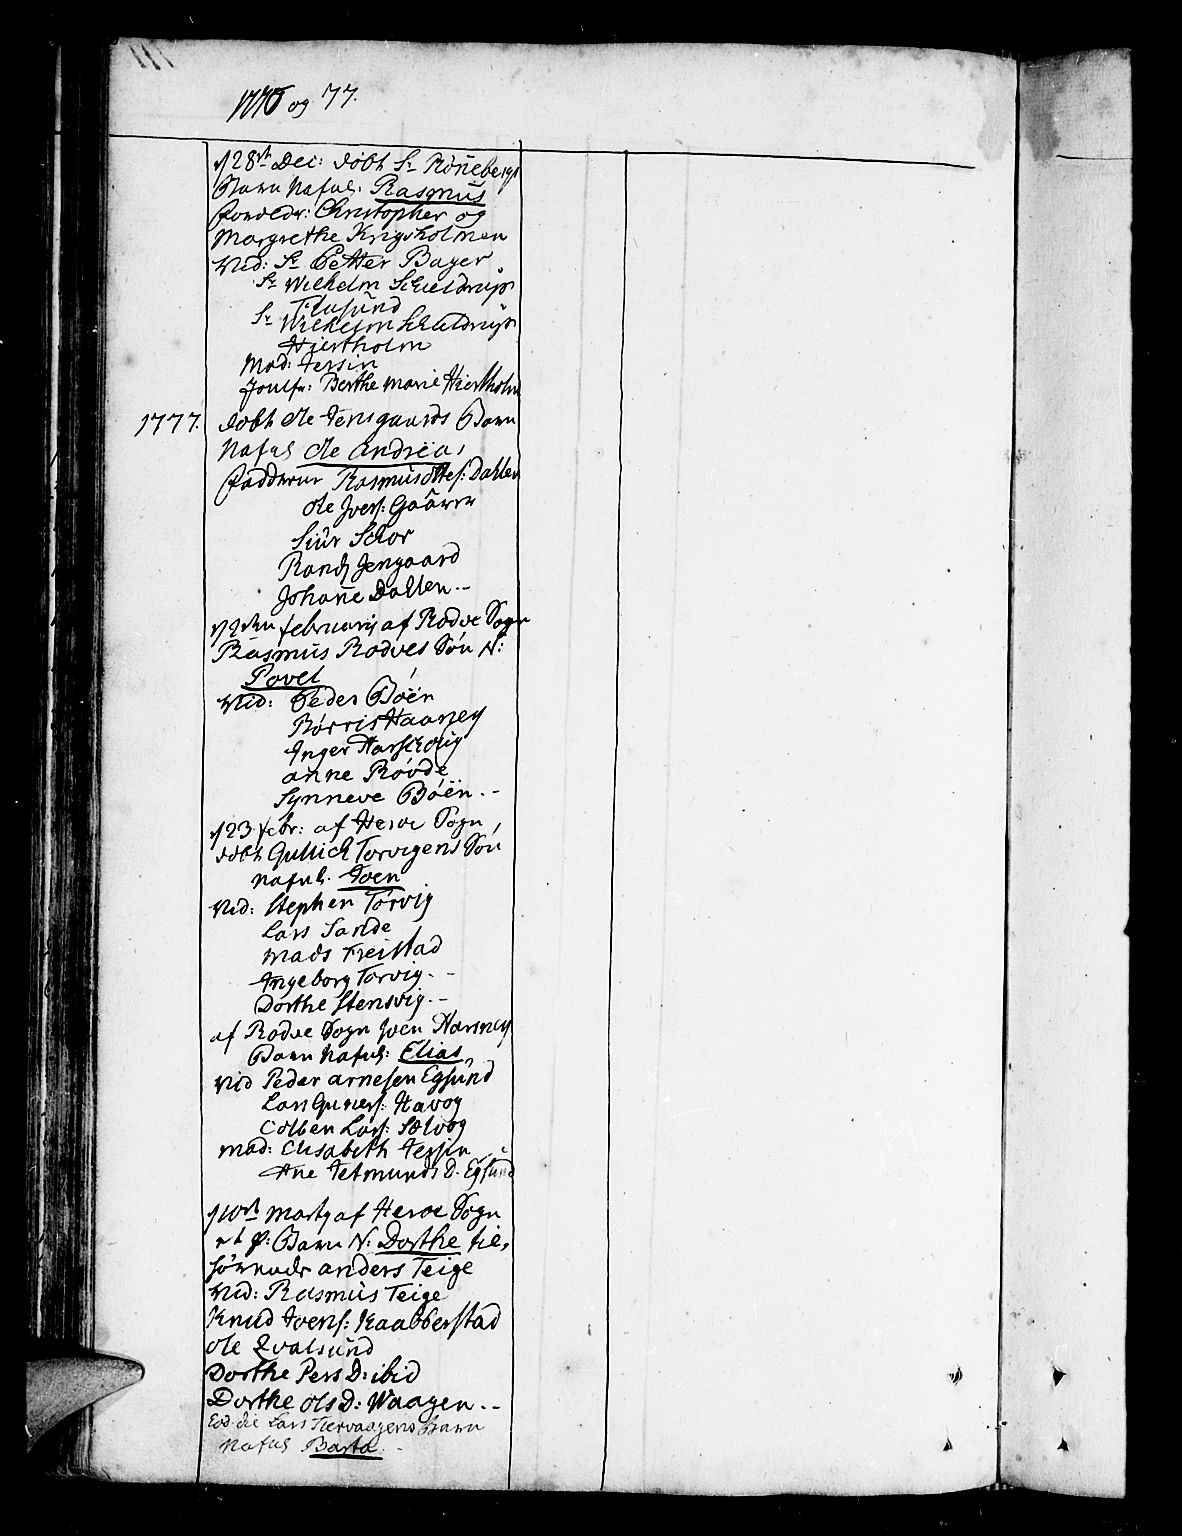 1776 og 77.
d 28de Dec: döbt Sr Rönnebergs
Barn Nafnl: Rasmus
forældr: Christopher og
Margrethe Krigsholmen
Vid: Sr Petter Bayer
Sr Wilhelm Schieldrup
Sr Wilhelm Schieldrup
Hiertholm
Mad: Jersin
Jomfr: Berthe Marie Hiertholm
1777. döbt Ole Jensgaards Barn
Nafnl Ole Andreas
Fadderne Rasmus Ottes: Dahlen
Ole Jvers:
Siür Schor
Johanne Dahlen.-
d 2den februarij af Rodve Sogn
Rasmüs Rodves Sön N:
Povel
Vid: Peder Böen
Börris Haanæy
Inger
Anne Rövde
Synneve Böen.-
d 23 febr: af Heroe Sogn
döbt Gullich Torvigens Sön
Nafnl. Joen
Vid: Stephen Torvig
Lars Sande
Mads Freistad
Ingeborg Torvig.-
Dorthe Stensvig.-
af Rodve Sogn Joen
Barn Nafnl: Elias
Vid Peder Arnesen Egsünd
Lars Guners: Havog
Colben Lars: Selvog
Mad: Elisabeth Jersin
Ane Jetmunds D. Egsünd
af Heroe Sogn
Barn N: Dorthe til,
hörende Anders Teige
Vid: Rasmus Teige
Knud Joens: Kaabberstad
Ole Qvalsünd
Dorthe Pers D: ibid
Dorthe Ols D: Waagen.-
Eod: die Lars Tiervaagens Barn
Nafnl Barta.-